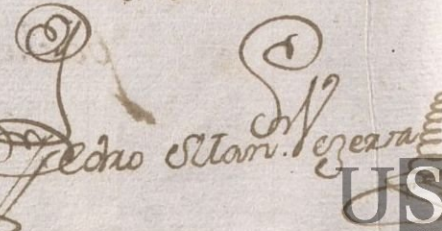 Pedro Man. Vezerra
US